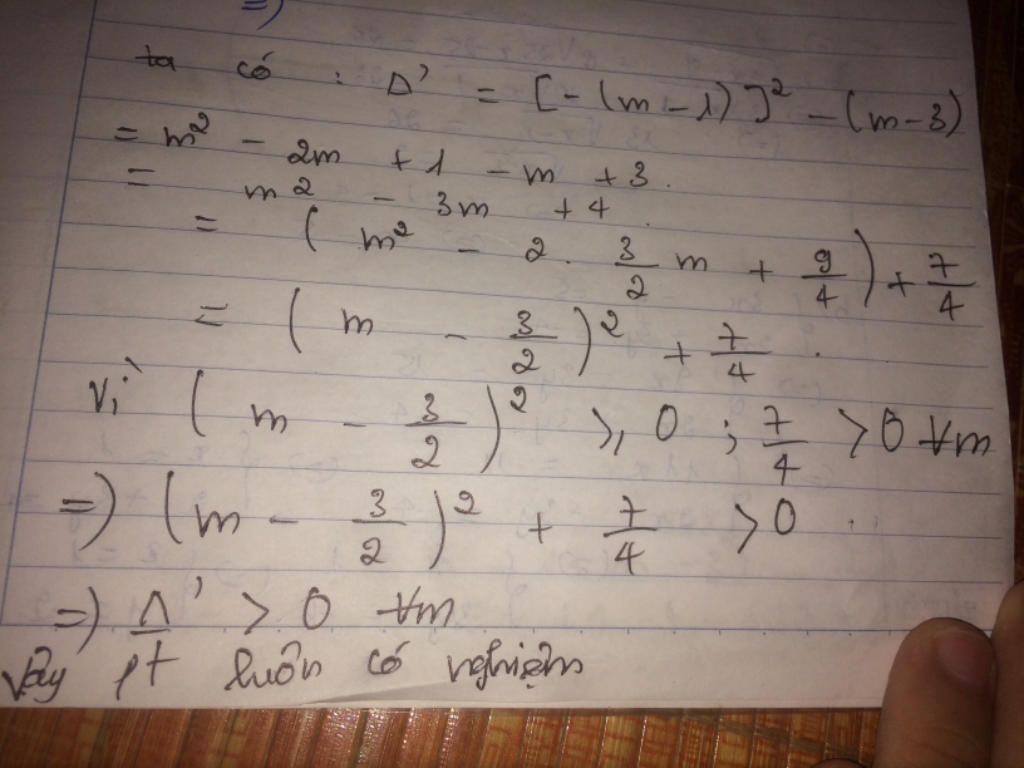 =>
ta có : Δ' = [-(m-1)]² - (m-3)
= m² - 2m + 1 - m + 3.
= m² - 3m + 4.
= (m² - 2. 3/2 m + 9/4) + 7/4
= (m - 3/2)² + 7/4.
Vì (m - 3/2)² ≥ 0 ; 7/4 > 0 ∀m
=> (m - 3/2)² + 7/4 > 0.
=> Δ' > 0 ∀m
Vậy pt luôn có nghiệm